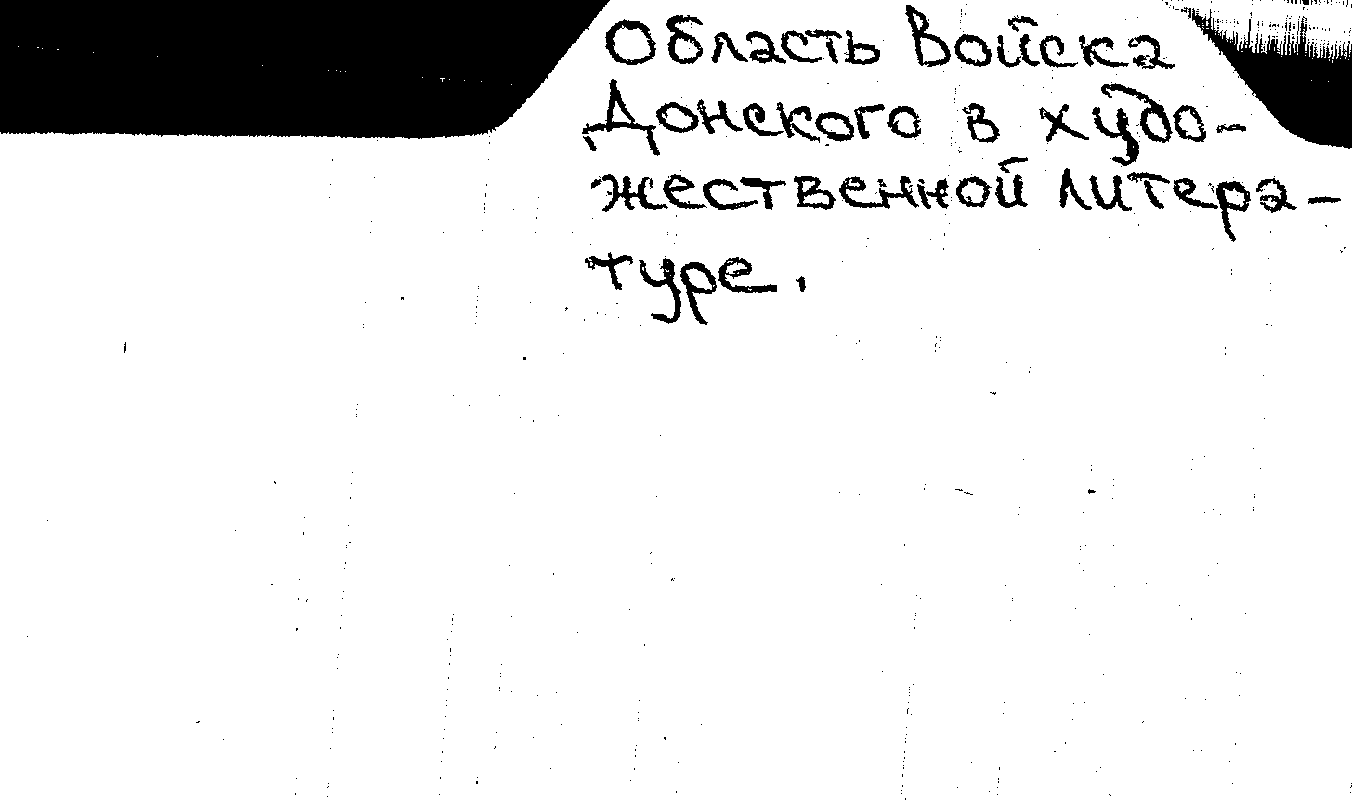 Область Войска
Донского в худо-
жественной литера-
туре.